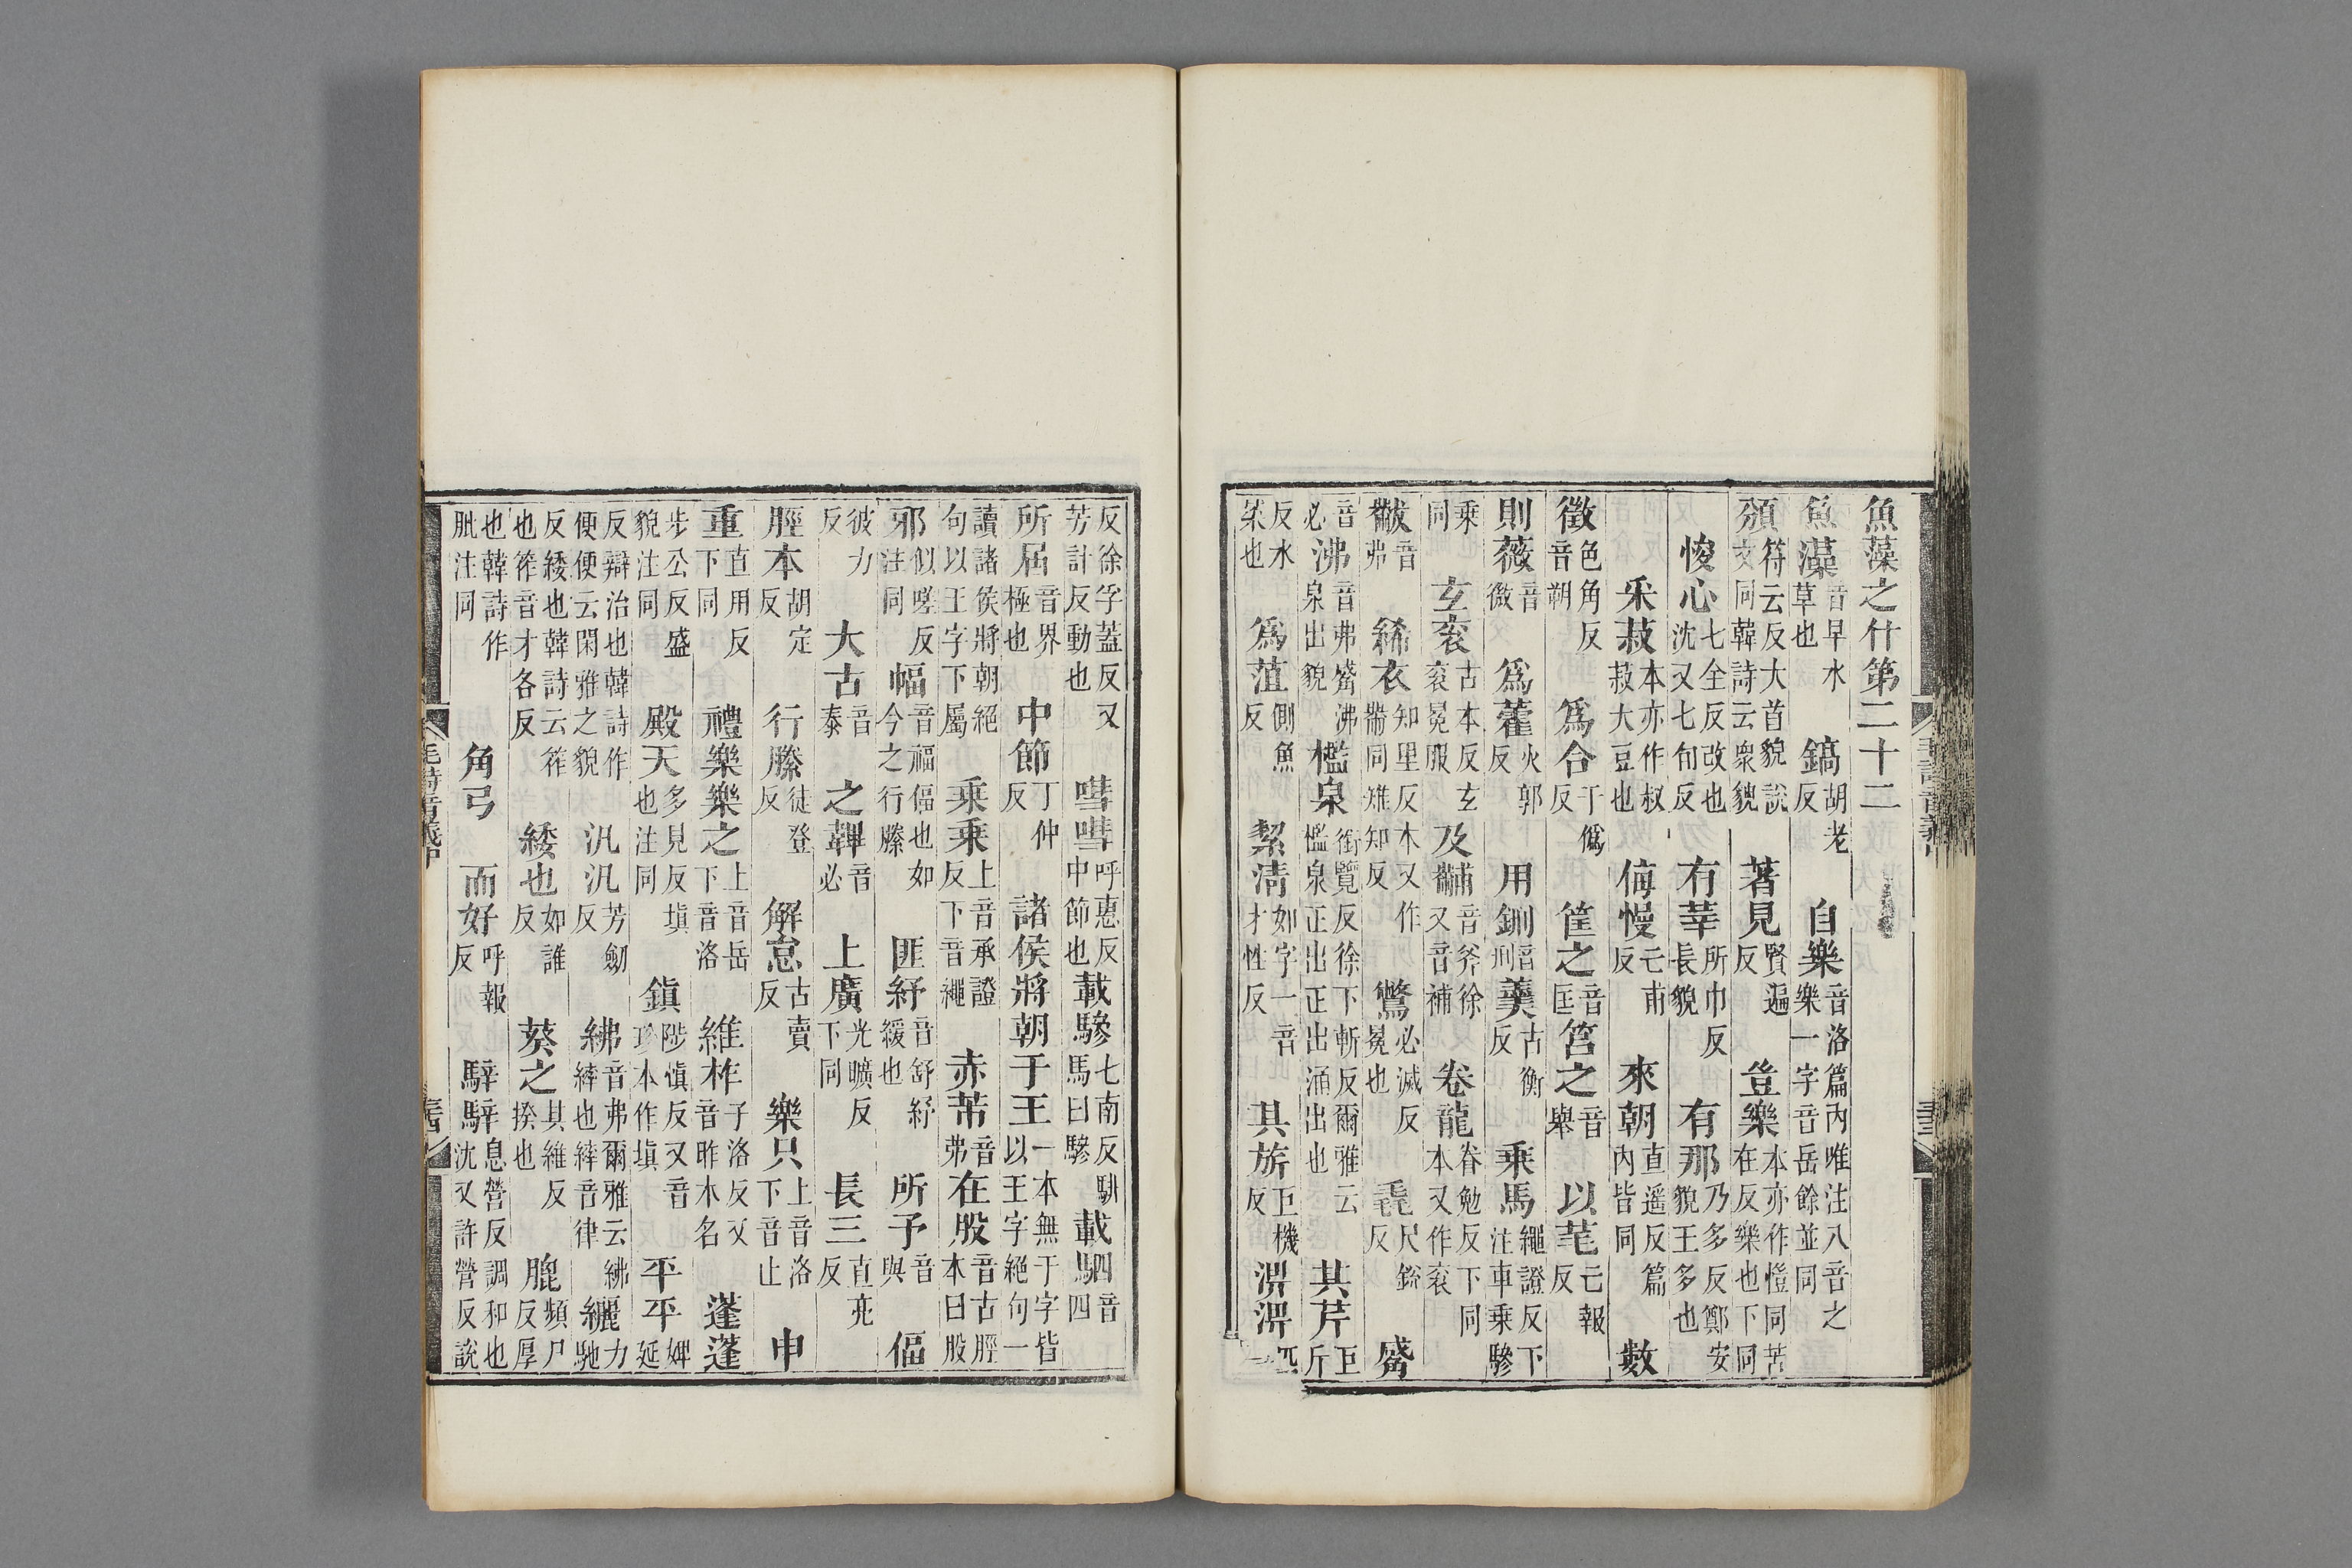 魚藻之什第二十二
魚藻音早水草也 鎬胡老反 自樂音洛篇內唯注八音之樂一字音岳餘並同
頒符云反大首貌說文同韓詩云衆貌 著見賢遍反 豈樂本亦作愷同苦在反樂也下同
悛心七全反改也沈又七旬反 有莘所巾反長貌 有那乃多反鄭安貌王多也
采菽本亦作叔菽大豆也 侮慢亡甫反 來朝直遥反篇內皆同 數
徵色角反音朔 爲合于僞反 筐之音匡筥之音舉 以芼亡報反
則薇音微 爲藿火郭反 用鉶音刑羹古衡反 乘馬繩證反下注車乘驂
乘同 玄衮古本反玄衮冕服 及黼音斧徐又音補 卷龍眷勉反下同本又作衮
黻音弗 絺衣知里反本又作黹同雉知反 鷩必滅反冕也 毳尺銳反 觱
音必沸音弗觱沸泉出貌 檻泉銜覽反徐下斬反爾雅云檻泉正出正出涌出也 其芹巨斤
反水菜也 爲菹側魚反 絜淸如字一音才性反 其旂巨機反 淠淠匹
反徐孚蓋反又芳計反動也 嘒嘒呼惠反中節也 載驂七南反馬曰驂 載駟音四
所屆音界極也 中節丁仲反 諸侯將朝于王一本無于字皆以王字絕句一
讀諸侯將朝絕句以王字下屬 乘乘上音承證反下音繩 赤芾音弗在股音古脛本曰股
邪似嗟反注同 幅音福偪也如今之行縢 匪紓音舒紓緩也 所予音與 偪
彼力反 大古音泰 之韠音必 上廣光曠反下同 長三直亮反
脛本胡定反 行縢徒登反 解怠古賣反 樂只上音洛下音止 申
重直用反下同 禮樂樂之上音岳下音洛 維柞子洛反又音昨木名 蓬蓬
步公反盛貌注同 殿天多見反塡也注同 鎭陟愼反又音珍本作塡 平平婢延
反辯治也韓詩作便便云閑雅之貌 汎汎芳劒反 紼音弗爾雅云紼繂也繂音律 纚力馳
反緌也韓詩云筰也筰音才各反 緌也如誰反 葵之其維反揆也 膍頻尸反厚
也韓詩作肶注同 角弓 而好呼報反 騂騂息營反調和也沈又許營反說
毛詩音義中